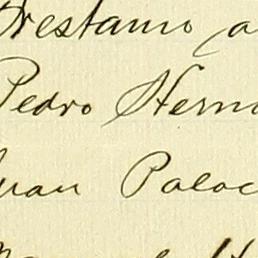 Prestamo a
Pedro Herna
Juan Palac